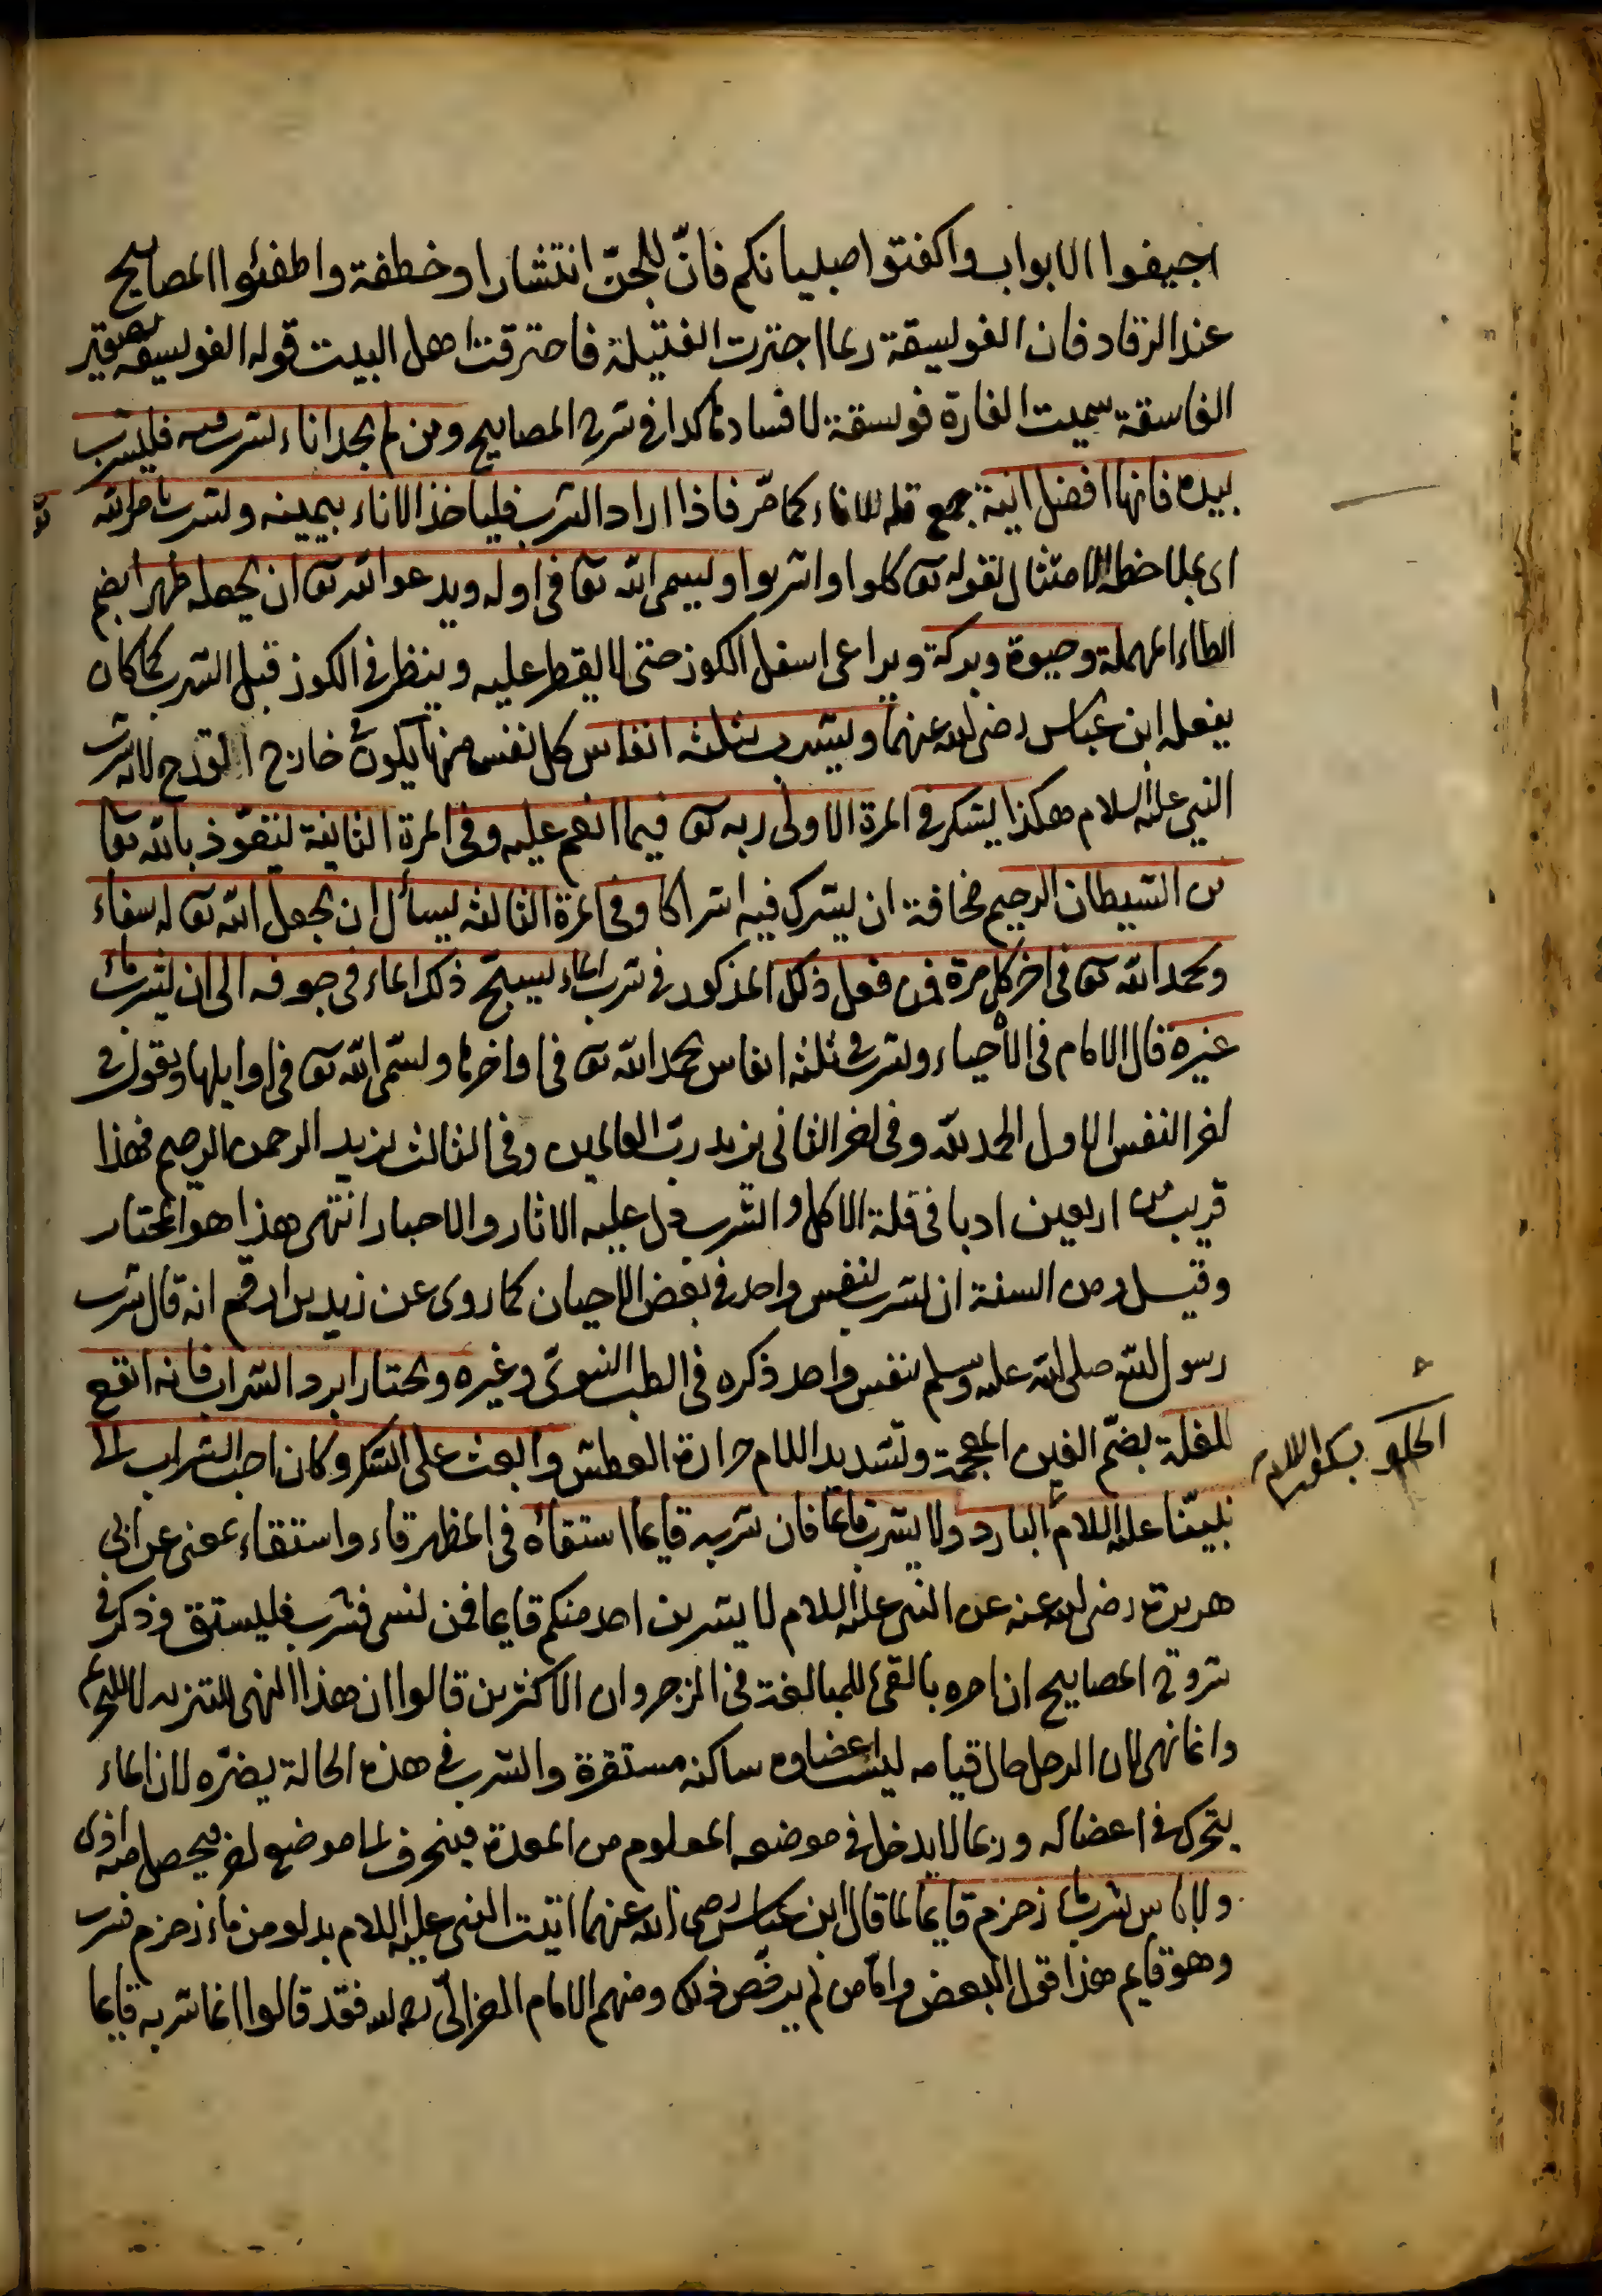 اجيفوا الابواب واكفتوا صبيانكم فانّ للجنّ انتشارا وخطفة واطفئوا المصابيح
عند الرقاد فان الفويسقة ربما اجترت الفتيلة فاحترقت اهل البيت قوله الفويسقة تصغير
الفاسقة سميت الفارة فويسقة لافسادها كذا في شرح المصابيح ومن لم يجد اناء يشرب فيه فليشرب
بيده فانها افضل انية جمع قلة للاناء كما مرّ فاذا اراد الشرب فلياخذ الاناء بيمينه ويشرب بامر الله تع
اى بملاحظة الامتثال لقوله تع كلوا واشربوا ويسمى الله تع في اوله ويدعو الله تع ان يجعله طهرا بضم
الطاء المهملة وحيوة وبركة ويراعى اسفل الكوز حتى لا يقطر عليه وينظر في الكوز قبل الشرب كما كان
يفعله ابن عباس رضى الله عنهما ويشرب بثلثه انفاس كل نفس منها يكون خارج القدح لانه شرب
النبي عليه السلام هكذا يشكر في المرة الاولى ربه تع فيما انعم عليه وفي المرة الثانية ليتعوّذ بالله تعا
من الشيطان الرجيم مخافة ان يشرك فيه اشراكا وفي المرة الثالثه يسأل ان يجعل الله تع له شفاء
ويحمد الله تع في اخر كل مرة فمن فعل ذلك المذكور في شرب الماء ليسبح ذلك الماء في جوفه الى ان يشرب ماء
غيره قال الامام في الأحياء ويشرب في ثلثه انفاس يحمد الله تع في اواخرها ويسمّى الله تع في اوايلها ويقول في
اخر النفس الاول الحمد لله وفي اخر الثانى يزيد ربّ العالمين وفي الثالث يزيد الرحمن الرحيم فهذا
قريب من اربعين ادبا في قلة الاكل والشرب دل عليه الاثار والاخبار انتهى هذا هو المختار
وقيل ومن السنة ان يشرب بنفس واحد في بعض الاحيان كما روى عن زيد بن ارقم انه قال شرب
رسول الله صلى الله عليه وسلم بنفس واحد ذكره في الطب النبوىّ وغيره ويختار ابرد الشراب فانه انقع
للغلة بضمّ الغين المعجمة وتشديد اللام حرارة العطش وابعث على الشكر وكان احب الشراب الى
نبيّنا عليه السلام البارد ولا يشرب قايما فان شربه قايما استقاه في المظهر قاء واستقاء بمعنى عن ابى
هريرة رضى الله عنه عن النبى عليه السلام لا يشربن احد منكم قايما فمن نسى فشرب فليستق وذكر في
شروح المصابيح ان امره بالقئ للمبالغة في الزجر وان الاكثرين قالوا ان هذا النهى للتنزيه لا للتحريم
وانما نهى لان الرجل حال قيامه ليست اعضاوه ساكنه مستقرة والشرب في هذه الحالة يضرّه لان الماء
يتحرك في اعضائه وربما لا يدخل في موضعه المعلوم من المعدة فينحرف الى موضع اخر فيحصل منه اذى
ولا باس بشرب ماء زمزم قايما لما قال ابن عباس رضى الله عنهما اتيت النبى عليه السلام بدلو من ماء زمزم فشرب
وهو قايم هذا قول البعض وامّا من لم يرخّص ذلك ومنهم الامام الغزالىّ رحمه الله فقد قالوا انما شربه قايما
الحلو بسكون اللام